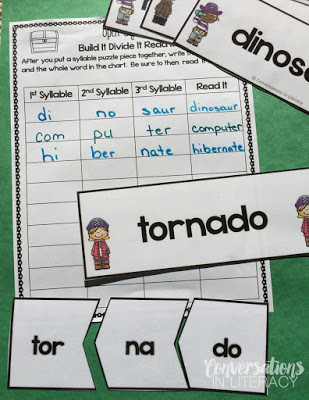 Build It Divide It Read It
After you put a syllable puzzle piece together, write the
and the whole word in the chart. Be sure to then read it
1st Syllable 2nd Syllable 3rd Syllable Read It
di no saur dinosaur
com pu ter computer
hi ber nate hibernate
dinosa
© Conversations in Literacy
tornado
tor na do
Conversations
IN LITERACY